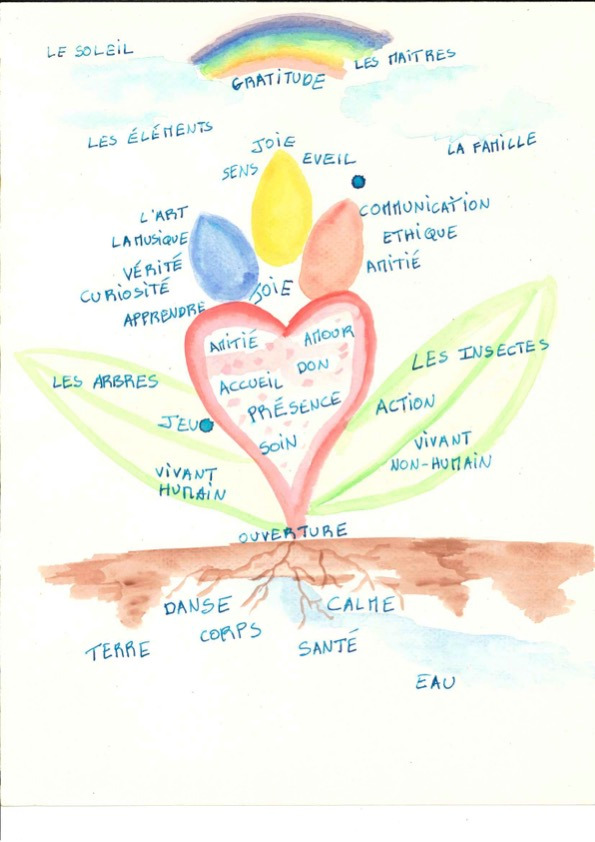 LE SOLEIL
LES MAITRES
GRATITUDE
LES ÉLÉMENTS
LA FAMILLE
JOIE
SENS
EVEIL
L'ART
LA MUSIQUE
VÉRITÉ
CURIOSITÉ
APPRENDRE
COMMUNICATION
ETHIQUE
AMITIÉ
JOIE
AMITIÉ
AMOUR
ACCUEIL
DON
PRÉSENCE
SOIN
LES ARBRES
JEU
VIVANT
HUMAIN
LES INSECTES
ACTION
VIVANT
NON-HUMAIN
OUVERTURE
DANSE
CALME
CORPS
TERRE
SANTÉ
EAU